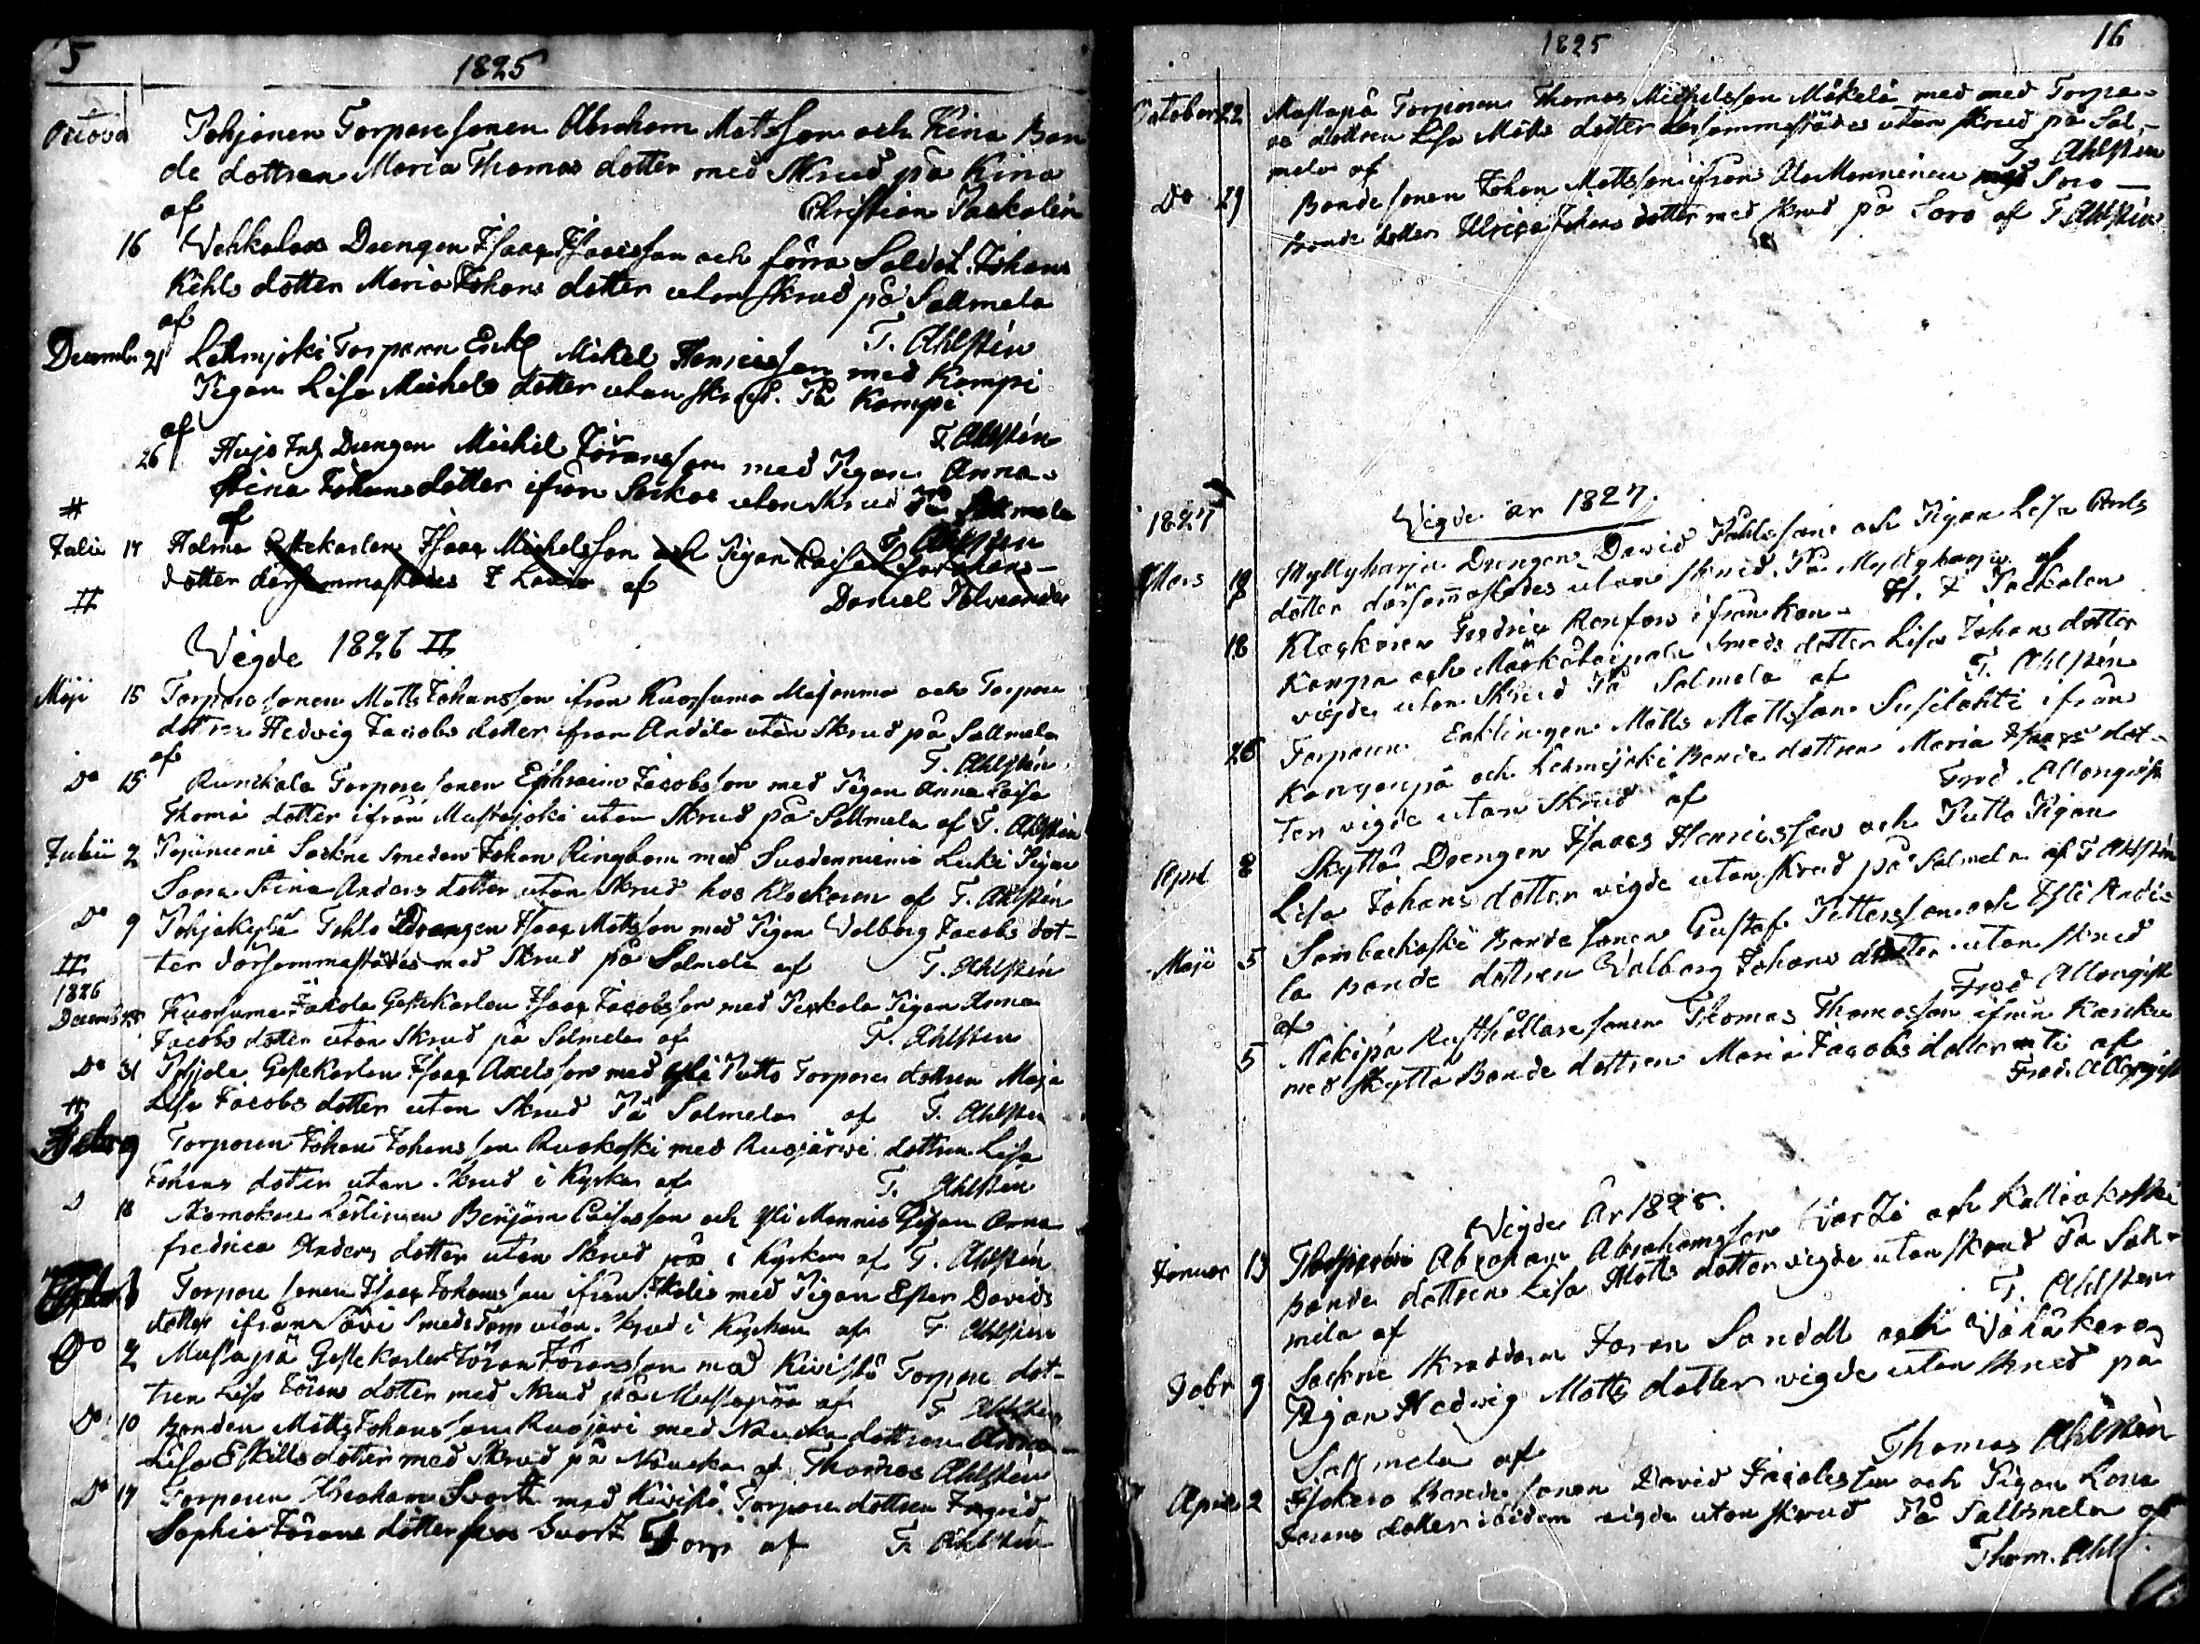 5
1825
Octobr Pohjanen Torpare sonen Abraham Matsson och Kina Bon
de dottren Maria Thomas dotter med Skrud på Kina
af Christian Packalén
16 Vehkalax Drengen Isaac Isacsson och förra Soldat. Johans
Kihls dotter Maria Johans dotter utan skrud på Sallmela
af T. Ahlstén
Decemb. 21 Lehmjoki Torparen Enkl Mikel Henricsson med Kampi
Pigan Lisa Michels dotter utan skrud. På Kampi
af T. Ahlstén
26 Drengen Michel Göransson med Pigan Anna
Stina Johans dotter ifrån Sockne utan skrud På Salmela
# af T. Ahlstén
Julii 17 Halma Gestekarlen Isaac Michelsson och Pigan Caisa Johans
dotter dersammastädes af
# Daniel
Vigde 1826 #
Maji 15 Torpare sonen Matts Johansson ifrån Kuossuma och Torpare
dottren Hedvig Jacobs dotter ifrån Andila utan Skrud på Sallmela
af T. Ahlstén
Do 15 Runikala Torpare sonen Ephraim Jacobsson med Pigan Anna Caisa
Thomas dotter ifrån Mustajoki utan Skrud på Sallmela af T. Ahlstén
Julii 2 Pajuniemi Sockne Smeden Johan Ringbom med Suodenniemi Luki Pigan
Sara Stina Anders dotter utan Skrud hos Klockaren af T. Ahlstén
Do 9 Pohjakylä Drengen Isaac Mattsson med Pigan Valborg Jacobs dot-
ter dersammastädes med Skrud på Salmela af T. Ahlstén
#
1826
Decemb Kuossuma Jakola Gestekarlen Isaac Jacobsson med Peskola Pigan Anna
Jacobs dotter utan Skrud på Salmela af T. Ahlstén
Do 31 Gestekarlen Isaac Axelsson med Yli Putto Torpare dottren Maja
# Lisa Jacobs dotter utan Skrud På Salmela af T. Ahlstén
9 Torparen Johan Johansson Ruokoski med Ruojärwi dottren Lisa
Johans dotter utan Skrud i Kyrkan af T. Ahlstén
D 18 Benjam Caisasson och Yli Mannis Pigan Anna
fredrica Anders dotter utan Skrud på i Kyrkan af T. Ahlstén
Torpare sonen Isaac Johansson ifrån med Pigan Ester Davids
dotter ifrån Sävi Smeds Torp utan Skrud i Kyrkan af T. Ahlstén
Do 2 Mustapä Gestekarlen Göran Göransson med Kivistö Torpare dot-
tren Lisa Görans dotter med Skrud på Mustapää af T. Ahlstén
Do 10 Bonden Matts Johansson Ruojärvi med Nauska dottren Anna
Lisa Eskills dotter med Skrud på Nauska af Thomas Ahlstén
Do 17 Torparen Abraham Svart med Kivistö Torpare dottren Ingrid
Sophia Görans dotter Svart Torp af T. Ahlstén
1825
16
October 22 Mustapä Torparen Thomas Michelsson Mäkelä med med Torpa-
re dottren Lisa Matts dotter dersammastädes utan skrud på Sal-
mela af T. Ahlstén
Do 29 Bonde sonen Johan Mattsson ifrån Ala Manninen med Soro
Bonde dotter Ulrica Johans dotter med skrud på Soro af T. Ahlstén
1827
Vigde år 1827.
Mars 18 Myllyharju Drengen David Pahlsson och Pigan Lisa Carls
dotter dersam̅astädes utan skrud. På Myllyharju af
H. J Packalen
18 Klockaren Fredric Renfors ifrån Kan-
kanpä och Smeds dotter Lisa Johans dotter
vigde utan Skrud På Salmela af T. Ahlstén
26 Torparen Enklingen Matts Mattsson Susilahti ifrån
Kankanpä och Lehmijoki Bonde dottren Maria Isaacs dot-
ter vigde utan Skrud af Fred. Allonqvist
April 8 Skyttä Drengen Isaac Henricsson och Putto Pigan
Lisa Johans dotter vigde utan skrud på Salmela af T Ahlstén
Maji 5 Sambackoski Bonde sonen Gustaf Pettersson och Yli Andi-
la Bonde dottren Valborg Johans dotter utan skrud
af Fred Allonqvist
5 Mäkipä Rusthållare sonen Thomas Thomasson ifrån
med Skyttä Bonde dottren Maria Jacobs dotter af
Fred. Allonqvist
Vigde År 1828.
Januar 13 Abraham Abrahamsson och Kallioikoski
Bonde dottren Lisa Matts dotter vigde utan skrud På Sall-
mela af T. Ahlstén
Febr 9 Sockne Skräddaren Joran Sandell och Vähäkero
Pigan Hedvig Matts dotter vigde utan Skrud på
Sallmela af Thomas Ahlstén
April 2 Isokero Bonde sonen David Jacobsson och Pigan Lena
Jorans dotter ibidem vigde utan skrud På Sallmela af
Thom. Ahlst.